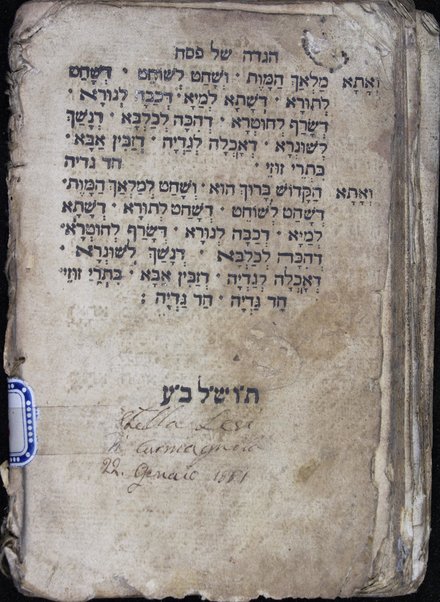 הגדה של פסח
וְאָתָא מַלְאַךְ הַמָּוֶת · וְשָׁחַט לְשׁוֹחֵט · דְּשָׁחַט
לְתוֹרָא · דְּשָׁתָא לְמַיָּא · דְּכָבָה לְנוּרָא ·
דְּשָׂרַף לְחוּטְרָא · דְּהִכָּה לְכַלְבָּא · דְּנָשַׁךְ
לְשׁוּנְרָא · דְּאָכְלָה לְגַדְיָה · דְּזַבִּין אַבָּא ·
בִּתְרֵי זוּזֵי · חד גדיה
וְאָתָא הַקָּדוֹשׁ בָּרוּךְ הוּא · וְשָׁחַט לְמַלְאַךְ הַמָּוֶת ·
דְּשָׁחַט לְשׁוֹחֵט · דְּשָׁחַט לְתוֹרָא · דְּשָׁתָא
לְמַיָּא · דְּכָבָה לְנוּרָא · דְּשָׂרַף לְחוּטְרָא ·
דְּהִכָּה לְכַלְבָּא · דְּנָשַׁךְ לְשׁוּנְרָא ·
דְּאָכְלָה לְגַדְיָה · דְּזַבִּין אַבָּא · בִּתְרֵי זוּזֵי ·
חַד גַּדְיָה · חַד גַּדְיָה :
ת'ו'ש'ל'ב'ע
Stella Levi
22. Gennaio